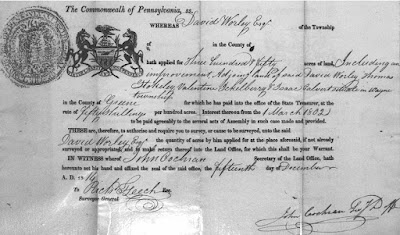 The Commonwealth of Pennsylvania, ss.
WHEREAS David Worley Esqr of the Township
of in the County of
hath applied for Three hundred & fifty acres of land, Including an
improvement Adjoing land of said David Worley Thomas
Stokeley Valentine Isaac in Wayne
township
in the County of Green for which he has paid into the office of the State Treasurer, at the
rate of fifty Shillings per hundred acres. Interest thereon from 1 March 1802
to be paid agreeably to the several acts of Assembly in such case made and provided.
THESE are, therefore, to authorise and require you to survey, or cause to be surveyed, unto the said
David Worley Esqr the quantity of acres by him applied for at the place aforesaid, if not already
surveyed or appropriated, and to make return thereof into the Land Office, for which this shall be your Warrant.
IN WITNESS whereof John Cochran Secretary of the Land Office, hath
hereunto set his hand and affixed the seal of the said office, the fifteenth day of December
A. D.
To Esq.
Surveyor General
John Cochran